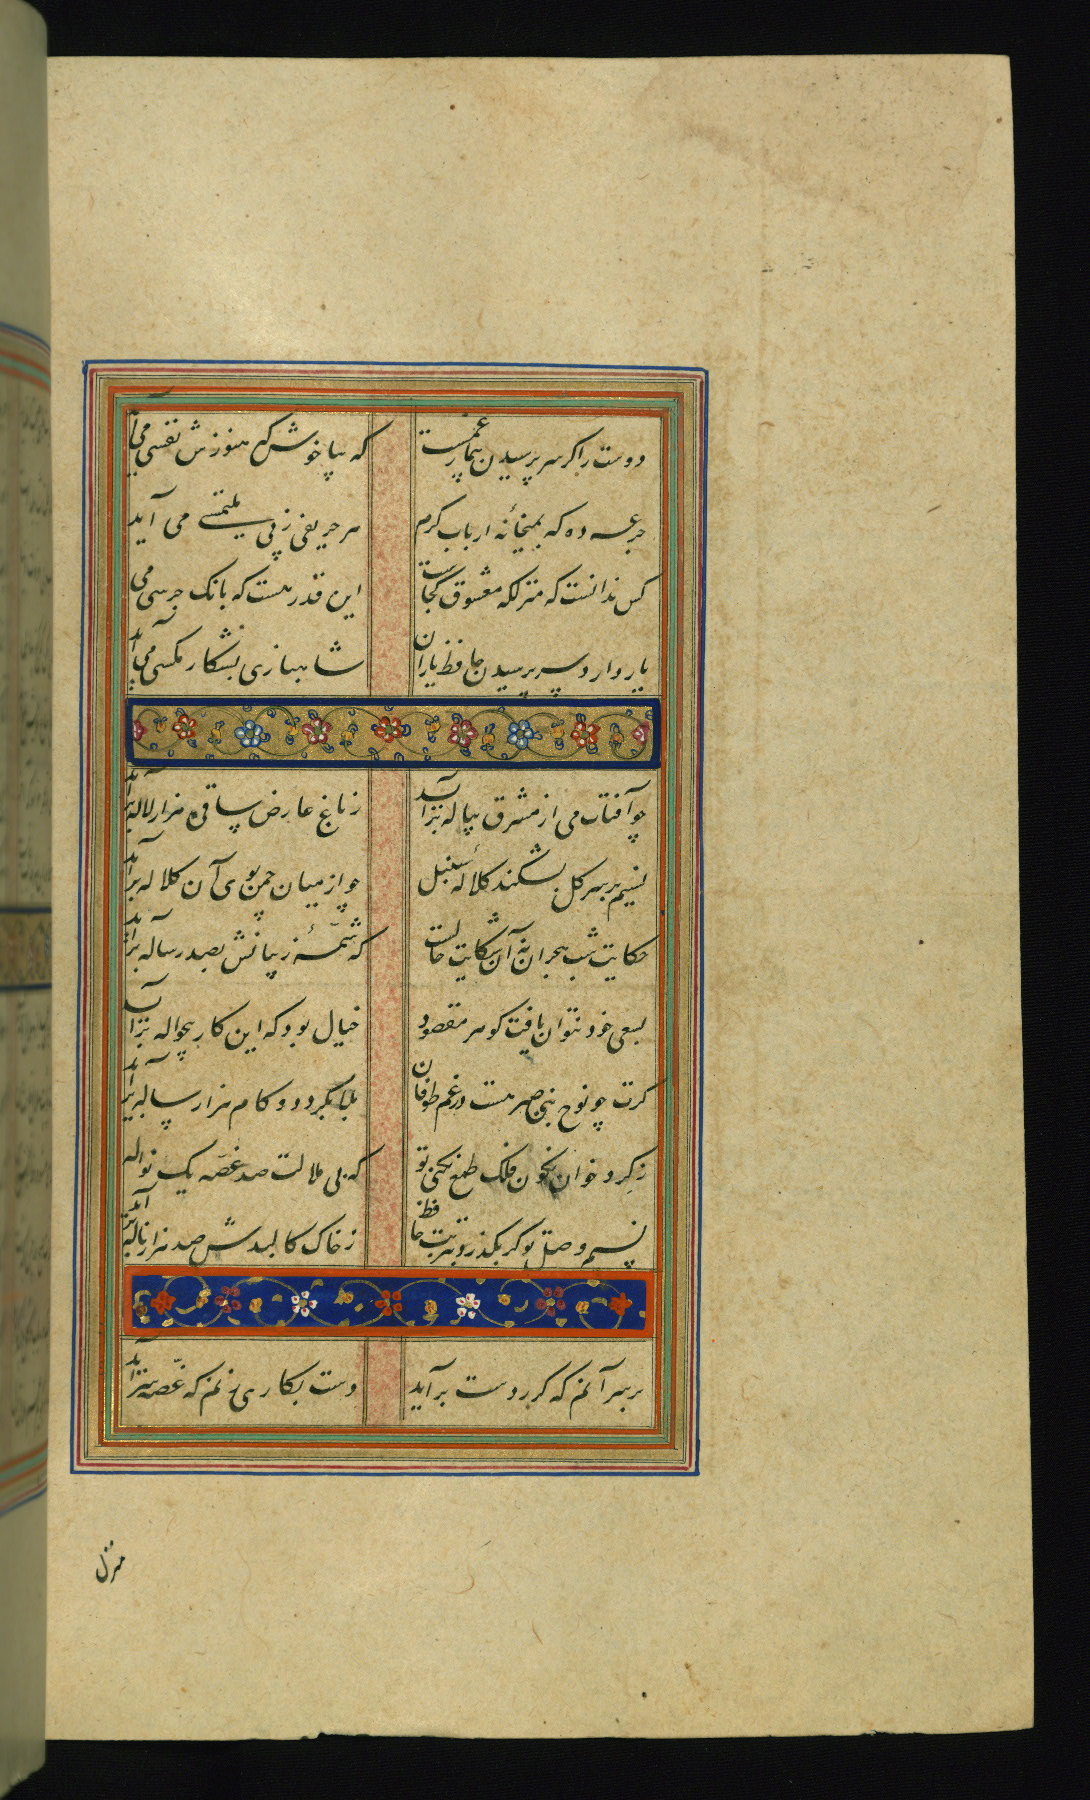 دوست را گر سر پرسیدن بیمار غمست که بیا خوش که هنوزش نفسی می آ
جرعه ده که بمیخانه ارباب کرم هر حریفی ز پی ملتمسی می آید
کس ندانست که منزلکه معشوق کجاست این قدر هست که بانک جرسی می آید
یار دارد سر پرسیدن حافظ یاران شاهبازی بشکار مکسی می آید
چو آفتاب می از مشرق پیاله برآید ز باغ عارض ساقی هزار لاله برآید
نسیم بر سر کل بشکند کلاله سنبل چو از میان چمن بوی آن کلاله برآید
حکایت شب هجران نه آن شکایت حالست که شمه ز بیانش بصد رساله برآید
بسعی خود نتوان یافت کوهر مقصود خیال بود که این کار بیحواله برآید
کرت چو نوح نبی صبر هست در غم طوفان بلا بگردد و کام هزار ساله برآید
ز کرد خوان نکون فلک طمع نکنی تو که بی ملالت صد غصه یک نواله
نسیم وصل تو کر بگذرد بتربت حافظ ز خاک کالبدش صد هزار ناله برآید
بر سر آنم که کر ز دست برآید دست بکاری زنم که غصه سرآید
منزل